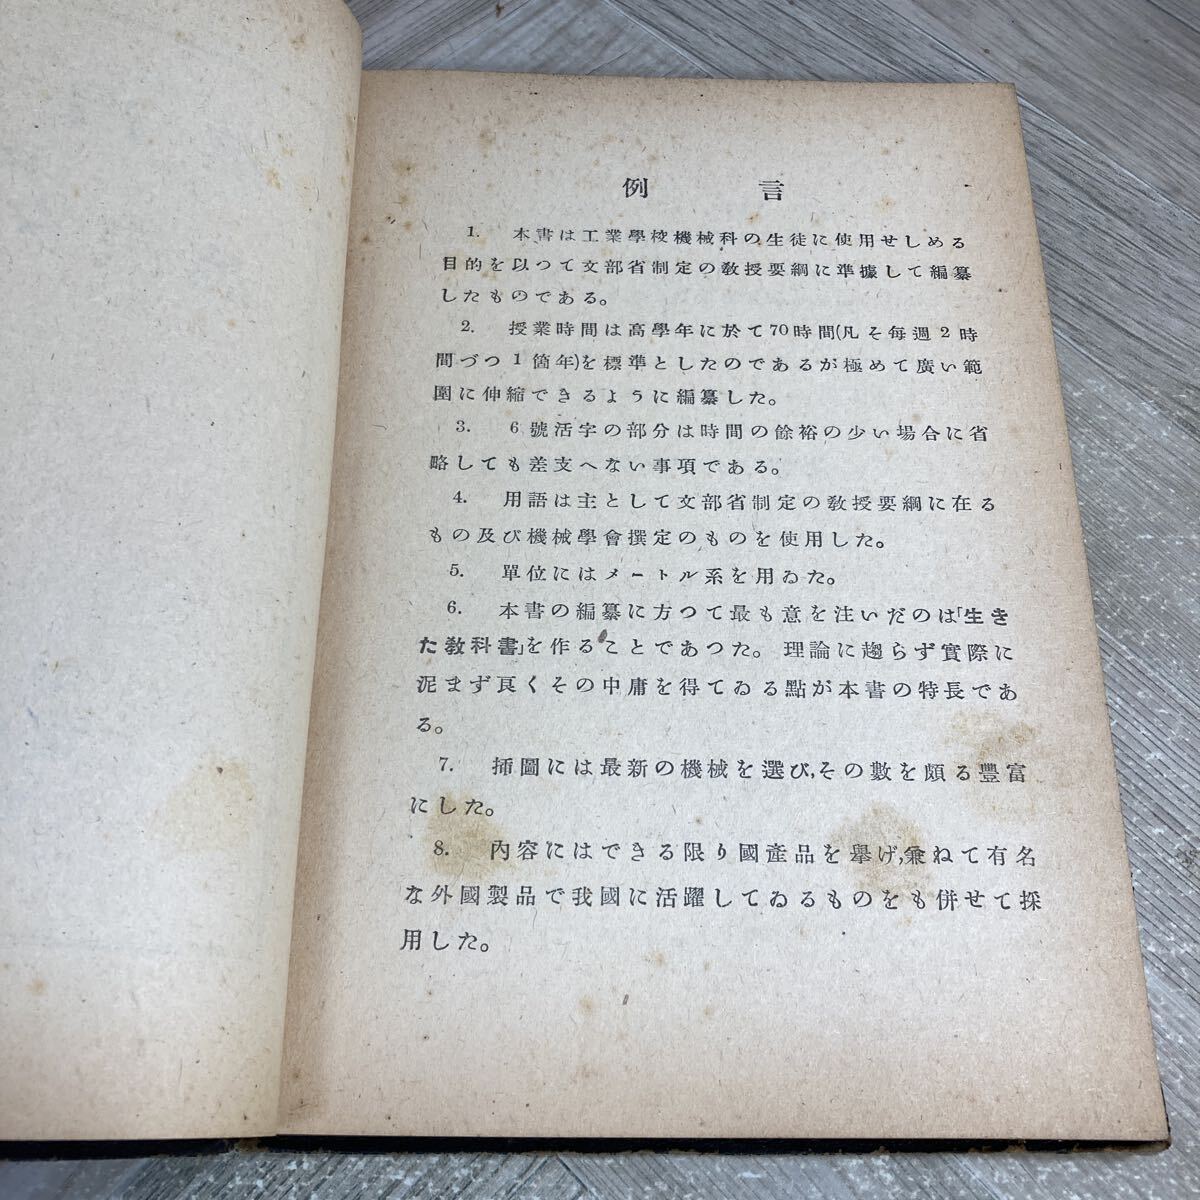 例言
1. 本書は工業學校機械科の生徒に使用せしめる
目的を以つて文部省制定の教授要綱に準據して編纂
したものである。
2. 授業時間は高學年に於て70時間(凡そ毎週2時
間づつ1箇年)を標準としたのであるが極めて廣い範
圍に伸縮できるように編纂した。
3. 6號活字の部分は時間の餘裕の少い場合に省
略しても差支へない事項である。
4. 用語は主として文部省制定の教授要綱に在る
もの及び機械學會撰定のものを使用した。
5. 單位にはメートル系を用ゐた。
6. 本書の編纂に方つて最も意を注いだのは「生き
た教科書」を作ることであつた。理論に趨らず實際に
泥まず良くその中庸を得てゐる點が本書の特長であ
る。
7. 揷圖には最新の機械を選び,その數を頗る豐富
にした。
8. 內容にはできる限り國產品を擧げ,兼ねて有名
な外國製品で我國に活躍してゐるものをも併せて採
用した。